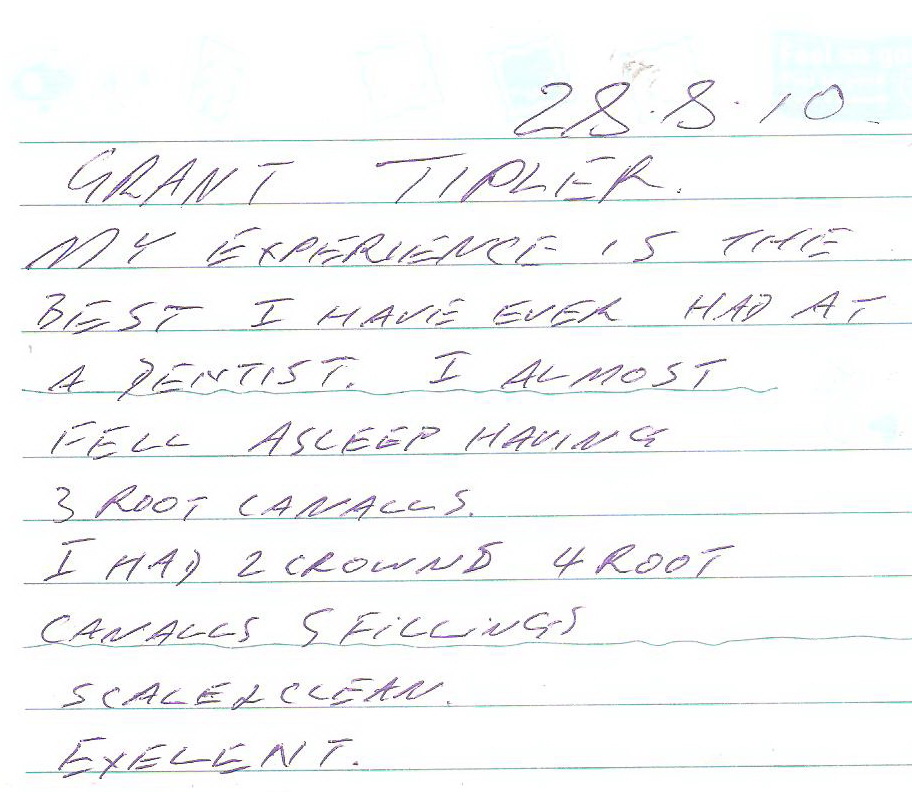 28.8.10.
GRANT TIPLER.
MY EXPERIENCE IS THE
BEST I HAVE EVER HAD AT
A DENTIST. I ALMOST
FELL ASLEEP HAVING
3 ROOT CANALLS.
I HAD 2 CROWNS 4 ROOT
CANALLS 5 FILLINGS
SCALE & CLEAN.
EXELENT.